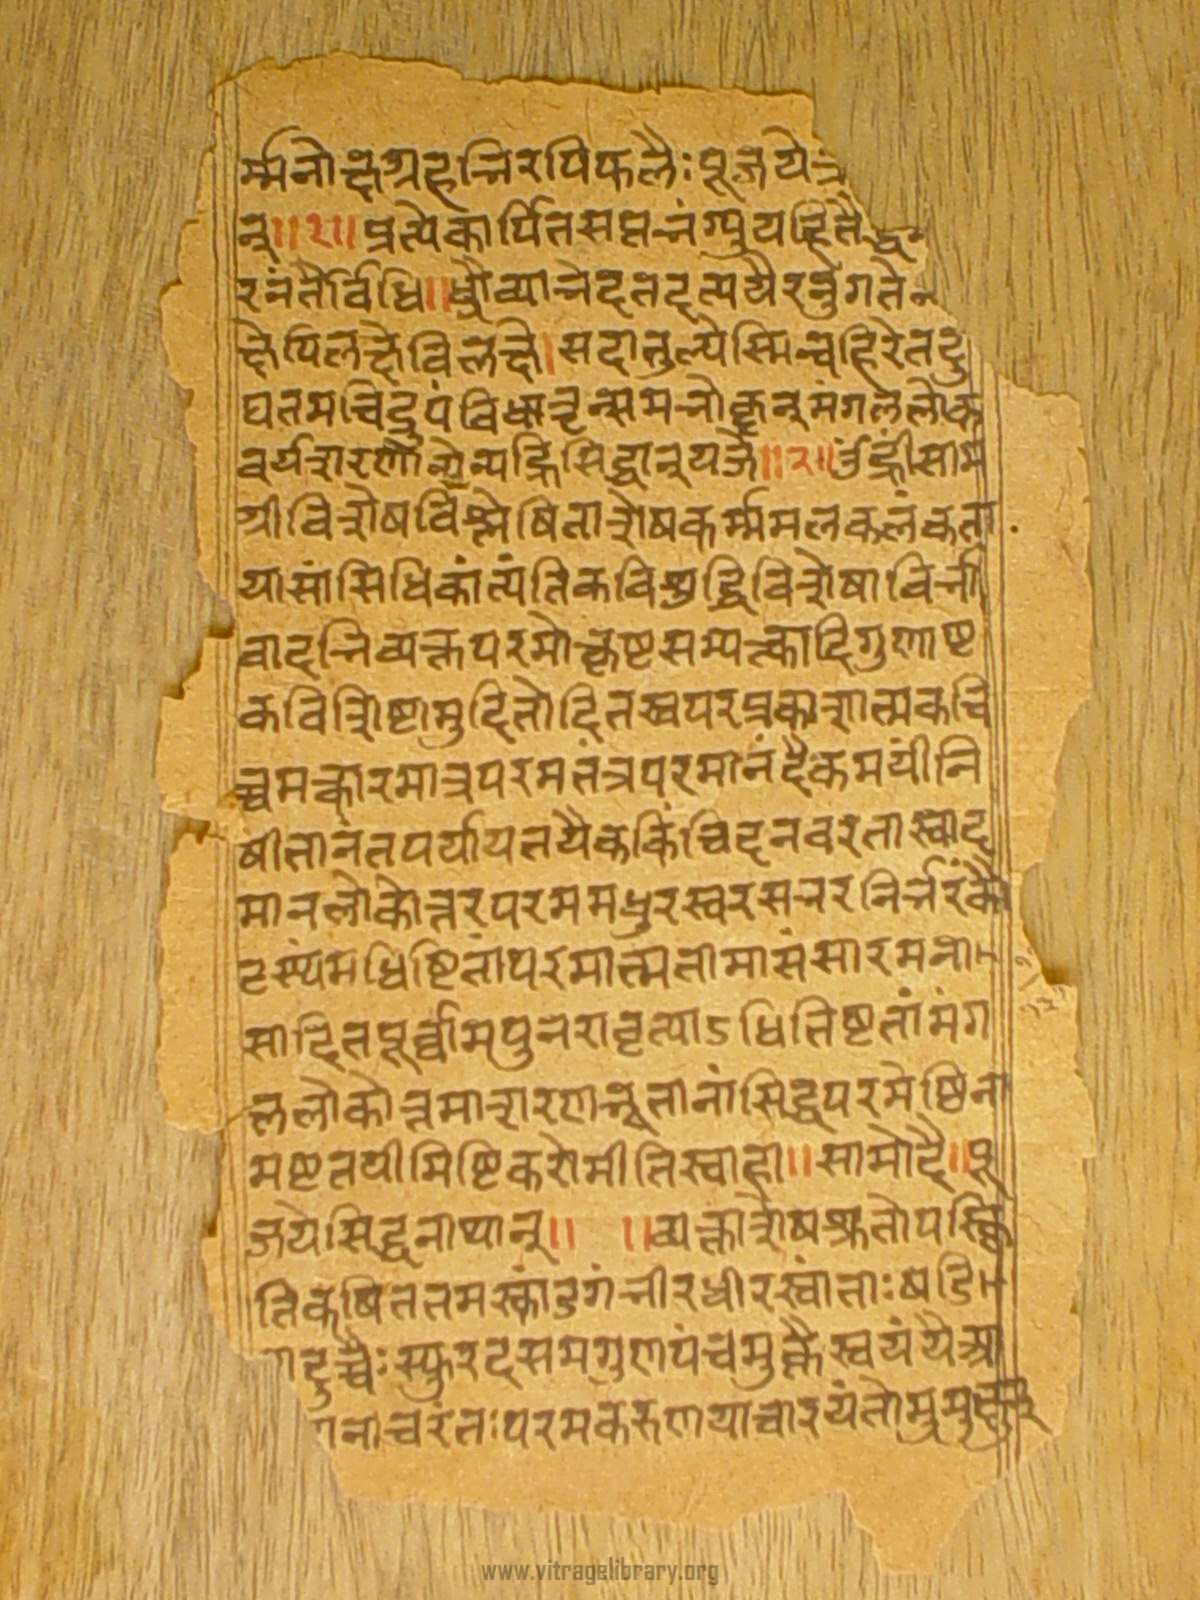 र्म्मनोद्धग्रहन्निरपिफलैः पूजये
न् ॥१॥ प्रत्येकार्पितसप्तभंग्युयहितै
रनंतैर्विधि ॥ध्रौव्याभेदतदत्ययैरनुगते
पिलक्षेविलक्षे। सदातुल्येस्मिन्बहिरेतदु
घतमचिद्रुपंविधानृन्समभोक्तृन्मंगललोक
वर्यशरणान्येन्यर्हिसिद्धान्यजे॥२॥ उँह्रीसाम
ग्रीविशेषविश्लेषिताशेषकर्म्ममलकलंकता
यासांसिधिकांत्यंतिकविशुद्धिविशेषाविर्भा
वादभिव्यक्तपरमोत्कृष्टसम्यत्कादिगुणाष्ट
कविशिष्टामुदितोदितस्वपरप्रकाशात्मकचि
च्चमत्कारमात्रपरमतंत्रपरमानंदैकमयीनि
षीतानंतपर्यायतयैककिंचिदनवरतास्वाद
मानलोकोत्तरपरममधुरस्वरसभरनिर्भरंकौ
टस्थ्यमधिष्टितांपरमात्मतामासंसारमना
सादितपूर्व्वामपुनरावृत्याऽधितिष्टतांमंग
ललोकोत्तमाशरणाभूतानांसिद्धपरमेष्ठिना
मष्टतयीमिष्टिकरोमीतिस्वाहा॥सामोदै॥पू
जयेसिद्धनाथान्॥ ॥व्यक्ताशेषश्रुतोपस्कि
तिकषिततमस्कांडगंभीरधीरस्वांताःषडि
दुच्चैःस्फुरदसमगुणपंचमुक्तैस्वयंयैआ
नाचरंतःपरमकरुणयाचारयंतोमुमुक्षून्
www.vitragelibrary.org